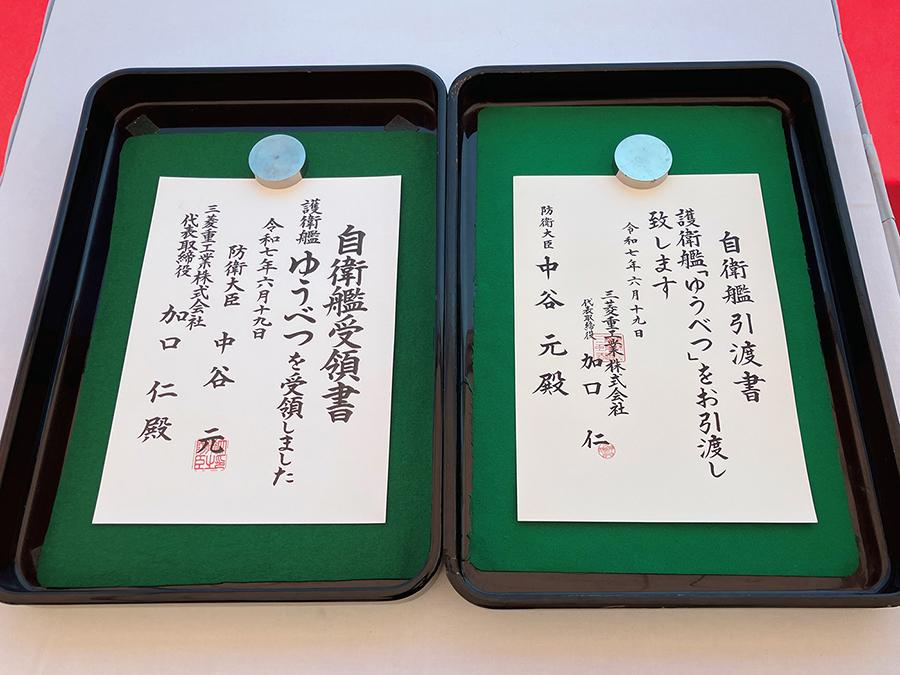 自衛艦引渡書
護衛艦「ゆうべつ」をお引渡し
致します
令和七年六月十九日
三菱重工業株式会社
代表取締役 加口 仁
防衛大臣 中谷 元 殿
自衛艦受領書
護衛艦 ゆうべつを受領しました
令和七年六月十九日
防衛大臣 中谷 元
三菱重工業株式会社
代表取締役 加口 仁 殿